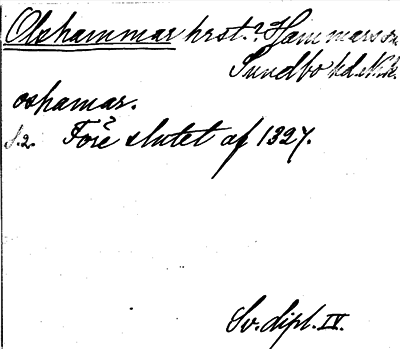 Olshammar hrst.? Hammars sn
Sundbo hd. Nke.
oshamar.
S. 2. Före slutet af 1327.
Sv. dipl. IV.